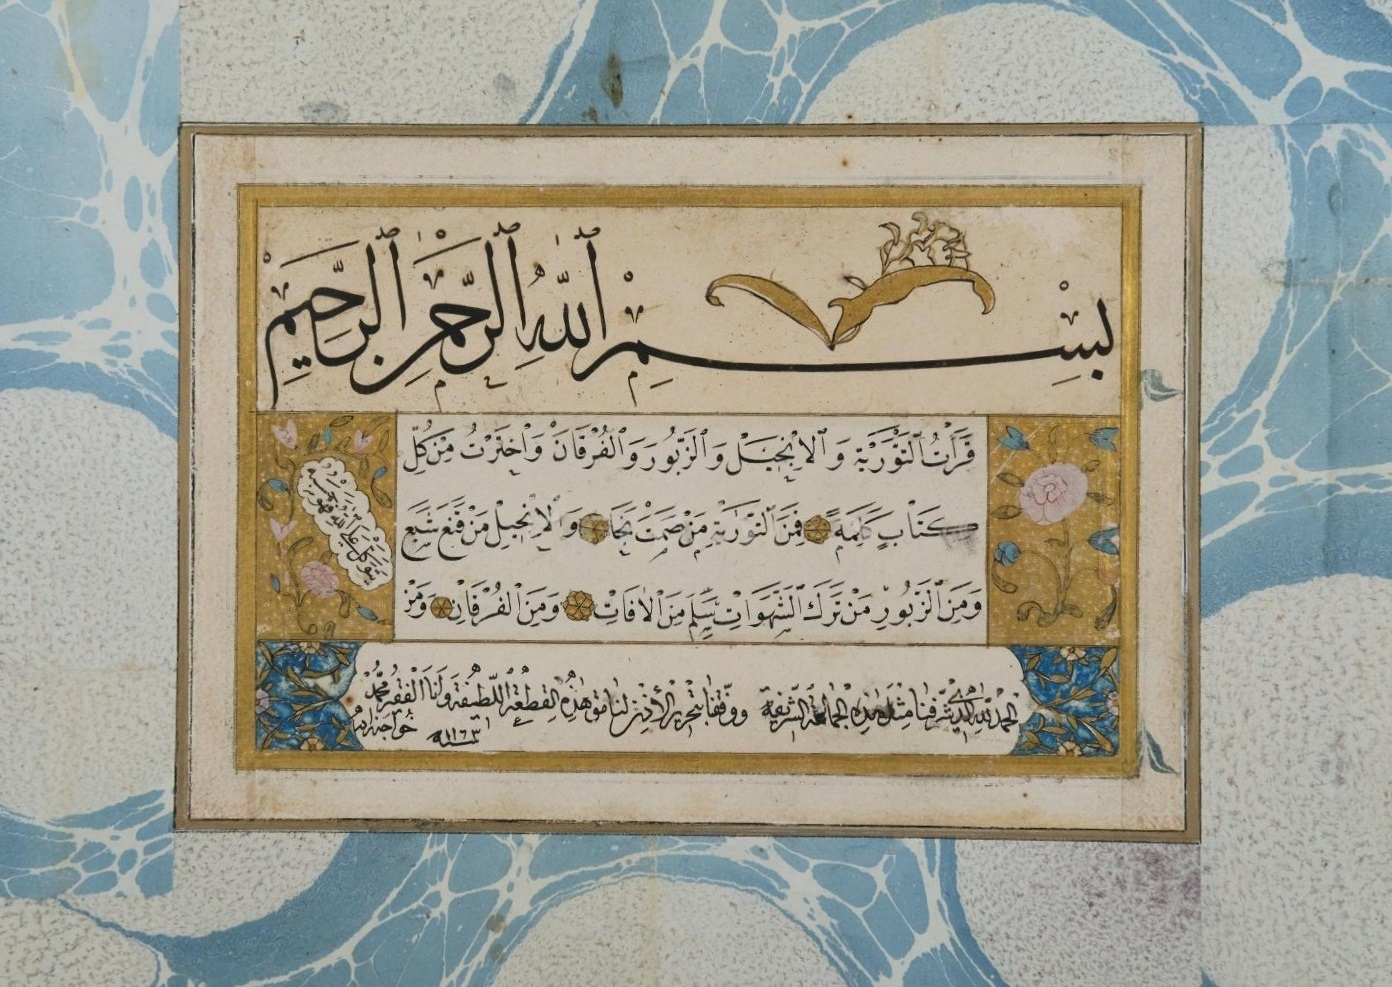 بِسْمِ ٱللّٰهِ ٱلرَّحْمٰنِ ٱلرَّحِيمِ
قَرَأْتُ ٱلتَّوْرٰيةَ وَ ٱلاِنْجِيلَ وَ ٱلزَّبُورَ وَ ٱلْفُرْقَانَ وَاخْتَرْتُ مِنْ كُلِّ
كِتَابٍ كَلِمَةً فَمِنَ ٱلتَّوْرٰيةِ مَنْ صَمَتَ نَجَا وَ ٱلاِنْجِيلِ مَنْ قَنَعَ شَبَعَ
وَمِنَ ٱلزَّبُورِ مَنْ تَرَكَ ٱلشَّهَوَاتِ سَلِمَ مِنَ ٱلاٰفَاتِ وَمِنَ ٱلْفُرْقَانِ وَمَنْ
يتوكل على الله فهو حسبه
الحمد لله الذى شرفنا مثل هذه الجمالعة الشريفة ووفقنا بتحرير الأذن لنامق هذه القطعة اللطيفة وانا الفقير محمد
خواجه زاده سنة ١١٦٣